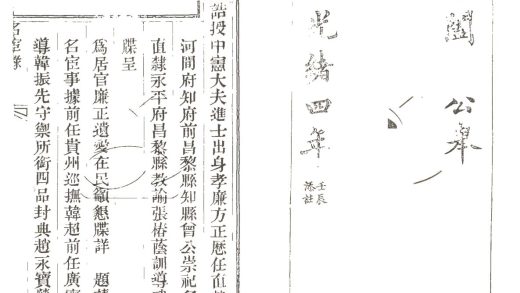 闔 公舉
光緒四年
壬辰
誥授中憲大夫進士出身孝廉方正歷任直
河間府知府前昌黎縣知縣曾公崇祀名
直隸永平府昌黎縣教諭張椿蔭訓導
牒呈
為居官廉正遺愛在民籲懇牒詳 題
名宦事據前任貴州巡撫韓超前任廣
導韓振先守禦所銜四品封典趙永寶
名宦錄